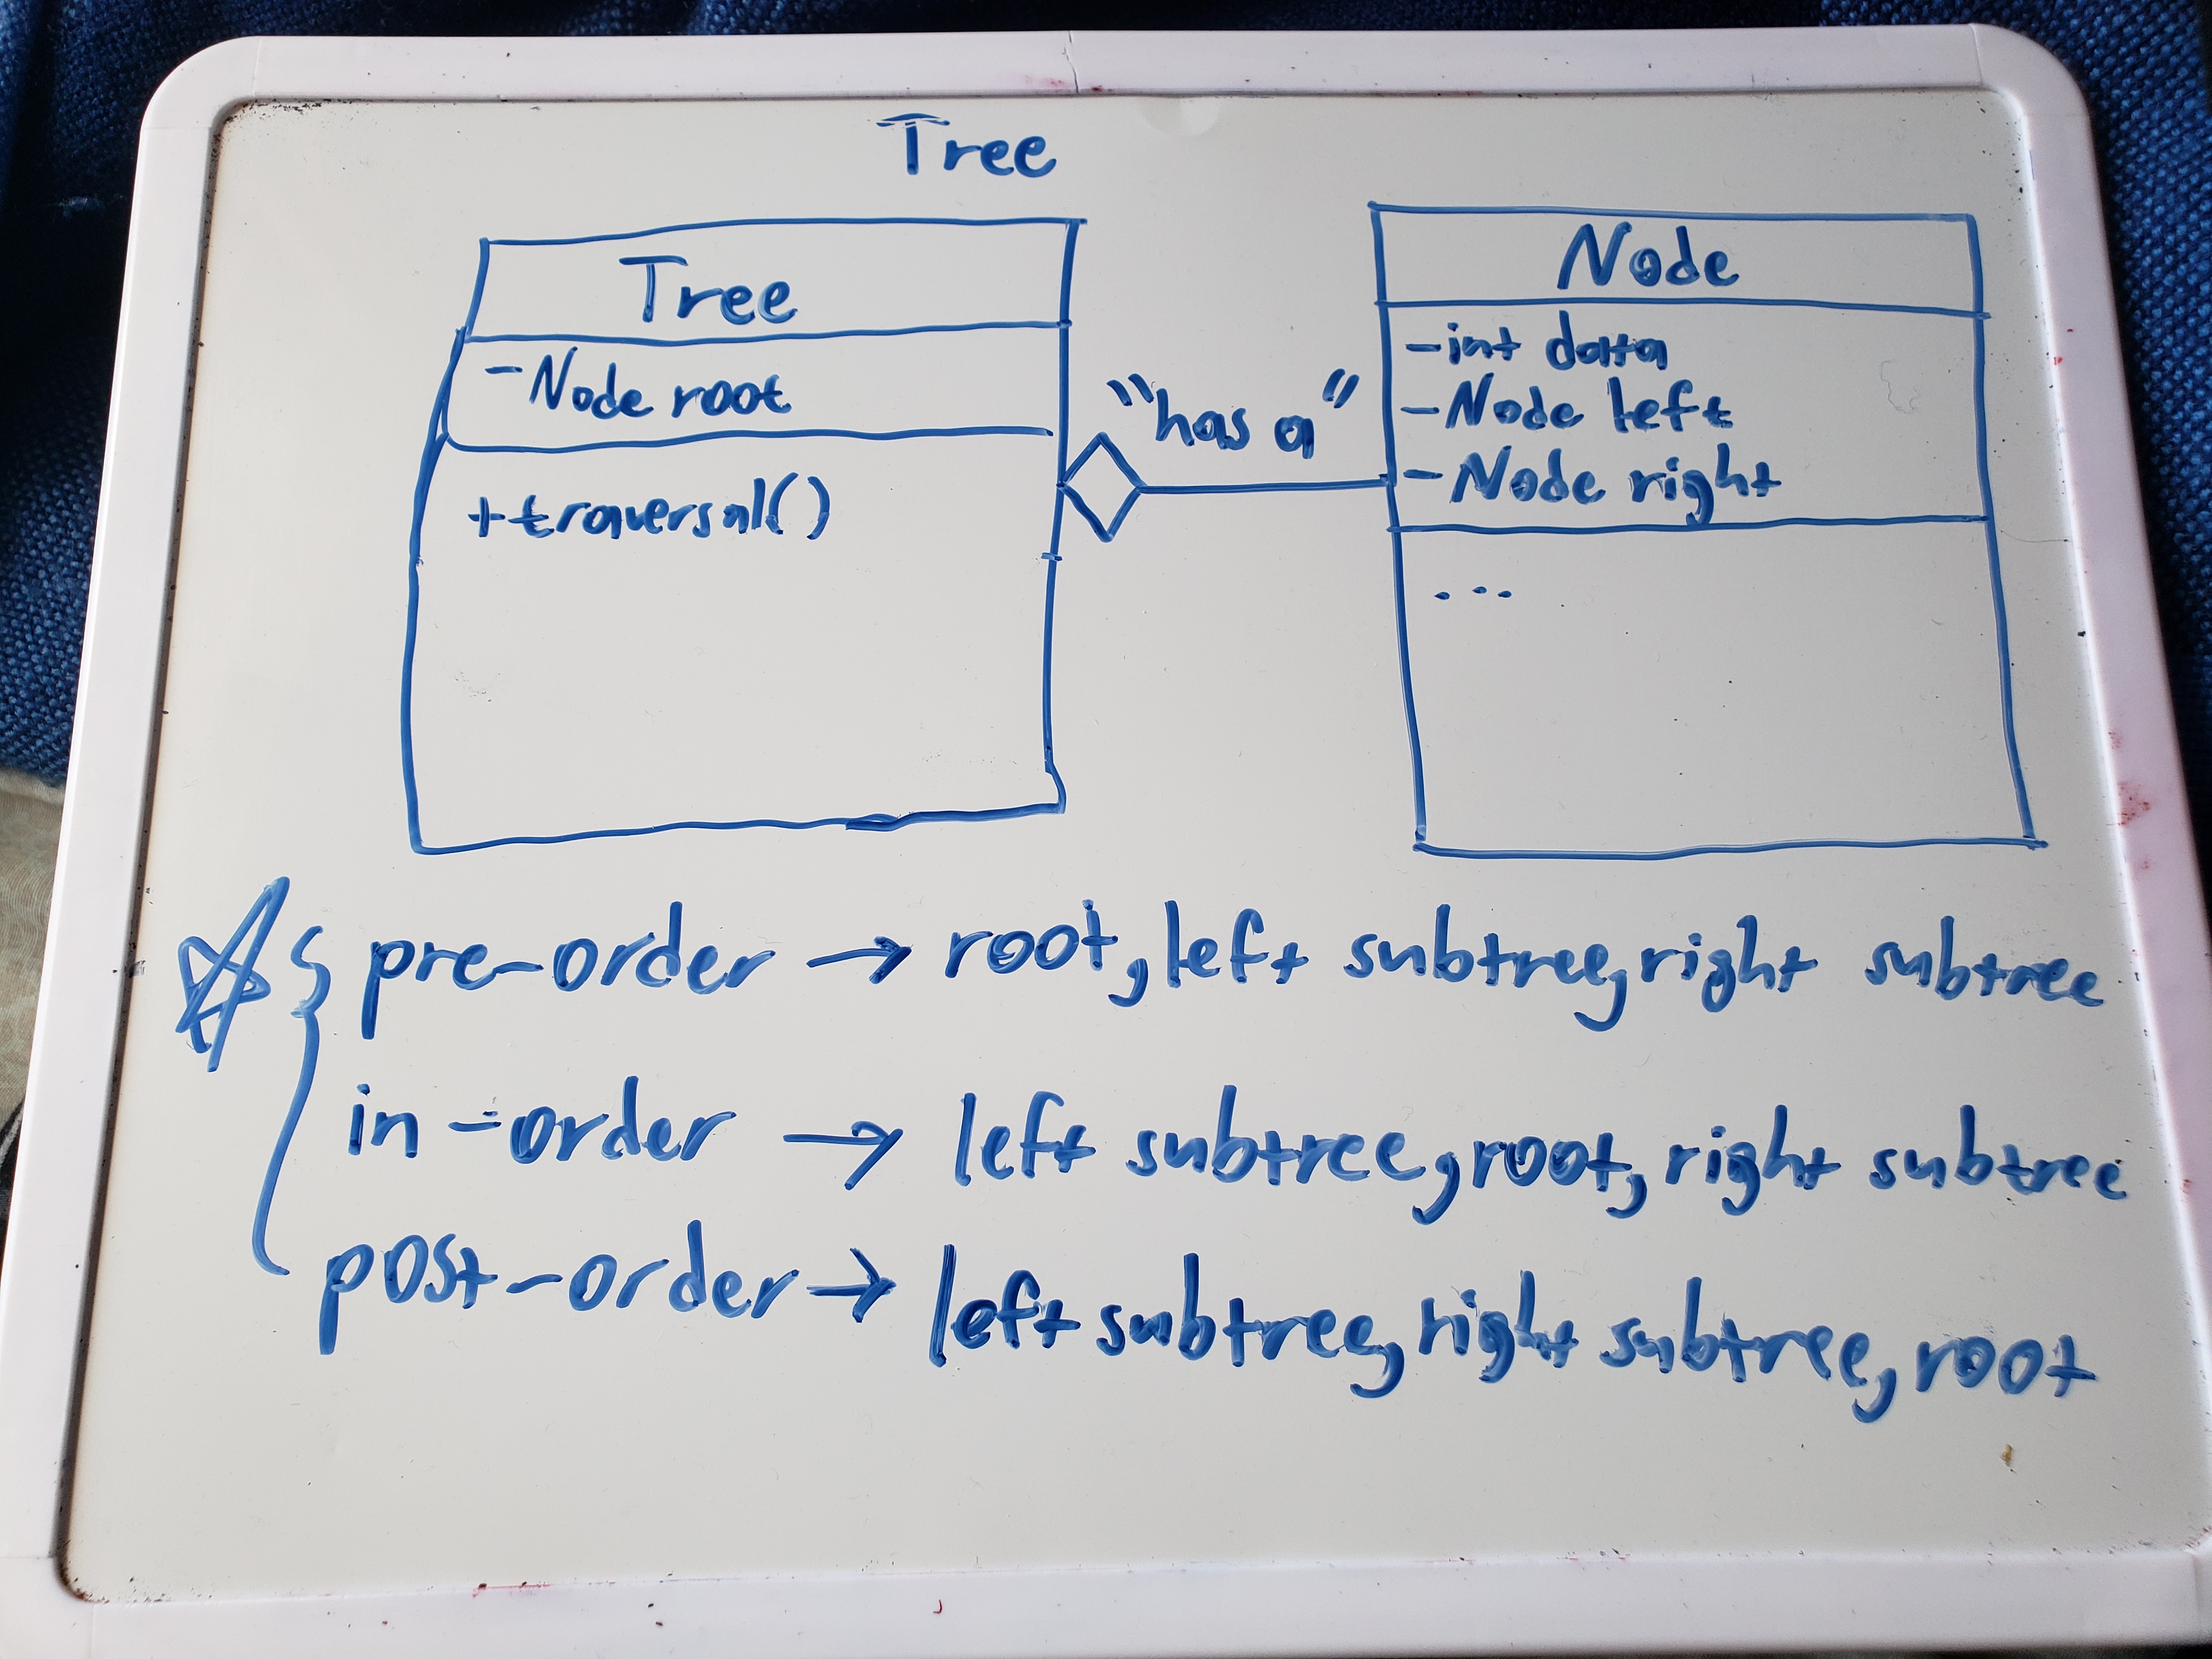 Tree
Tree
-Node root
+traversal()
"has a"
Node
-int data
-Node left
-Node right
...
pre-order → root, left subtree, right subtree
in-order → left subtree, root, right subtree
post-order → left subtree, right subtree, root